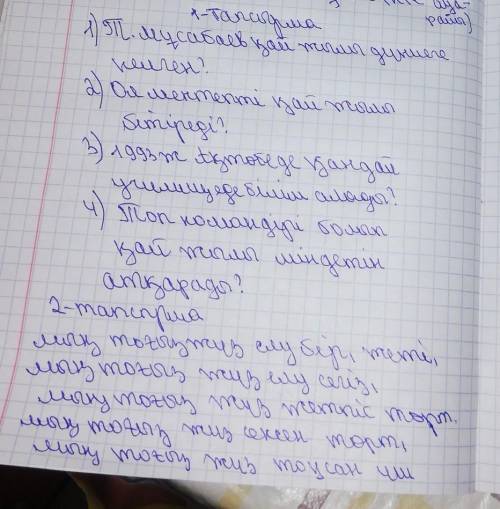 ауа-
райы)
1-тапсырма
1) Т. Мұсабаев қай жылы дүниеге
келген?
2) Ол мектепті қай жылы
бітіреді?
3) 1993ж Ақтөбеде қандай
училищеде білім алады?
4) Топ командирі болып
қай жылы міндетін
атқарады?
2-тапсырма
мың тоғыз жүз елу бір, жеті,
мың тоғыз жүз елу сегіз,
мың тоғыз жүз жетпіс төрт.
мың тоғыз жүз сексен төрт,
мың тоғыз жүз тоқсан үш